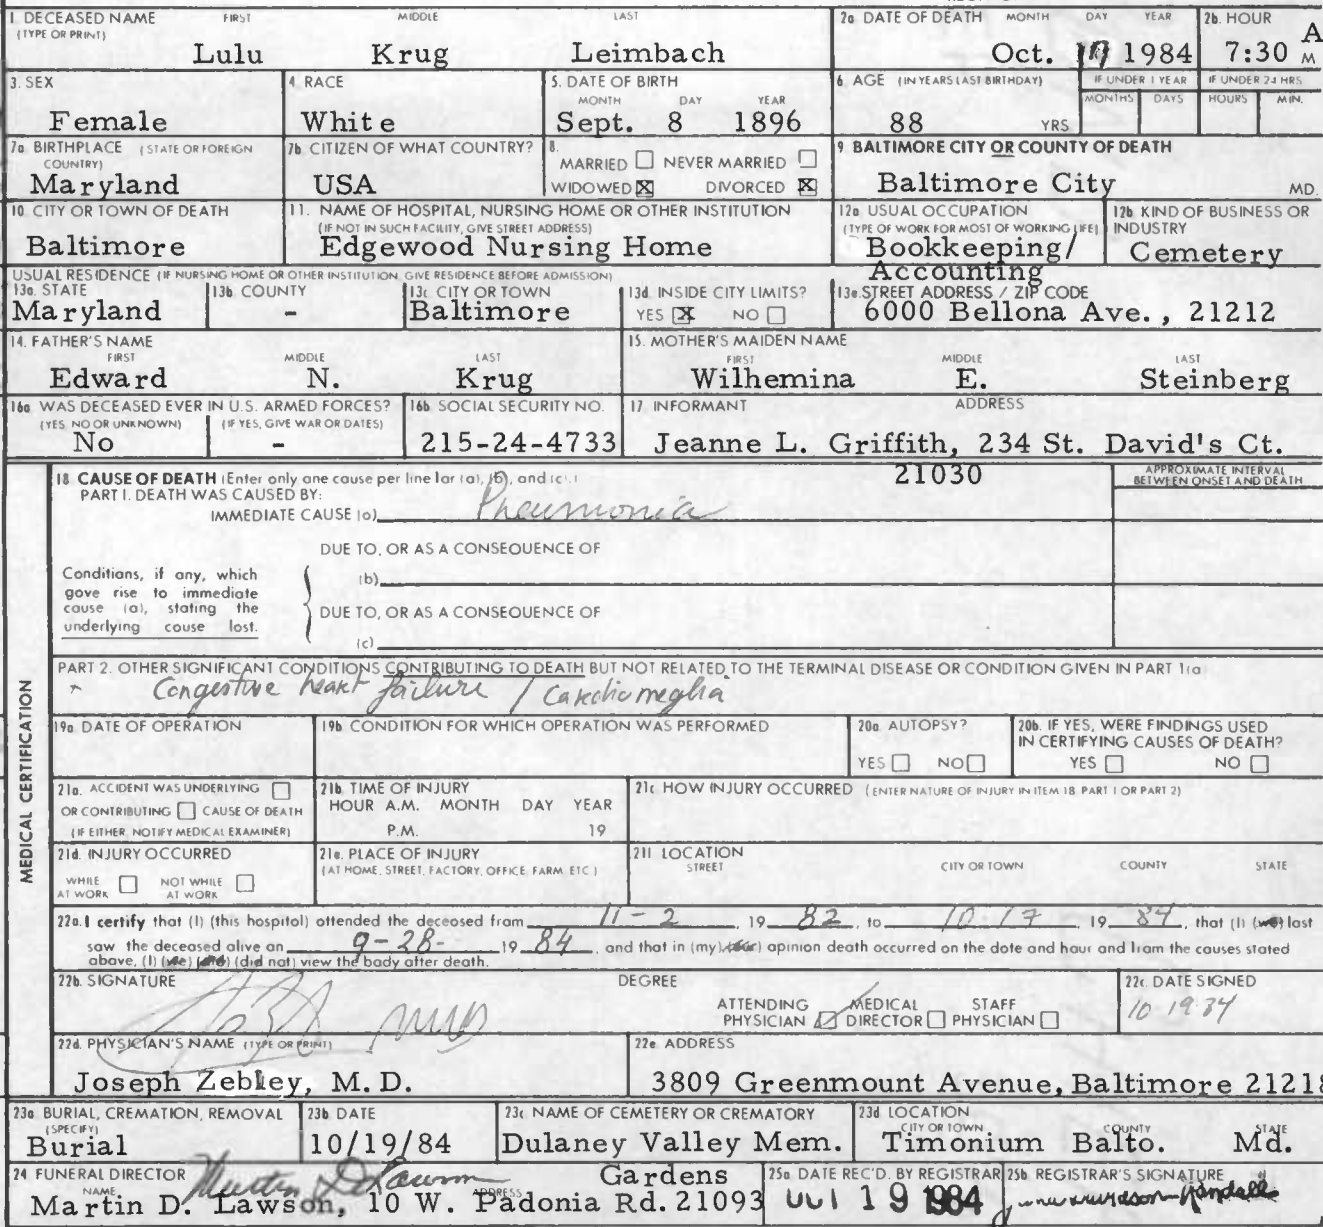 1. DECEASED NAME FIRST MIDDLE LAST
(TYPE OR PRINT)
Lulu Krug Leimbach
2a DATE OF DEATH MONTH DAY YEAR
Oct. 17 1984
2b. HOUR
7:30 A M
3. SEX
Female
4. RACE
White
5. DATE OF BIRTH
MONTH DAY YEAR
Sept. 8 1896
6 AGE (IN YEARS LAST BIRTHDAY)
88 YRS
IF UNDER 1 YEAR
MONTHS DAYS
IF UNDER 24 HRS
HOURS MIN.
7a BIRTHPLACE (STATE OR FOREIGN
COUNTRY)
Maryland
7b CITIZEN OF WHAT COUNTRY?
USA
8.
MARRIED ☐ NEVER MARRIED ☐
WIDOWED ☒ DIVORCED ☒
9 BALTIMORE CITY OR COUNTY OF DEATH
Baltimore City MD.
10 CITY OR TOWN OF DEATH
Baltimore
11. NAME OF HOSPITAL, NURSING HOME OR OTHER INSTITUTION
(IF NOT IN SUCH FACILITY, GIVE STREET ADDRESS)
Edgewood Nursing Home
12a USUAL OCCUPATION
(TYPE OF WORK FOR MOST OF WORKING LIFE)
Bookkeeping/
Accounting
12b KIND OF BUSINESS OR
INDUSTRY
Cemetery
USUAL RESIDENCE (IF NURSING HOME OR OTHER INSTITUTION GIVE RESIDENCE BEFORE ADMISSION)
13a. STATE
Maryland
13b COUNTY
-
13c CITY OR TOWN
Baltimore
13d INSIDE CITY LIMITS?
YES ☒ NO ☐
13e STREET ADDRESS / ZIP CODE
6000 Bellona Ave., 21212
14. FATHER'S NAME
FIRST MIDDLE LAST
Edward N. Krug
15. MOTHER'S MAIDEN NAME
FIRST MIDDLE LAST
Wilhemina E. Steinberg
16a WAS DECEASED EVER IN U.S. ARMED FORCES?
(YES, NO OR UNKNOWN) (IF YES, GIVE WAR OR DATES)
No -
16b SOCIAL SECURITY NO.
215-24-4733
17 INFORMANT ADDRESS
Jeanne L. Griffith, 234 St. David's Ct.
21030
MEDICAL CERTIFICATION
18 CAUSE OF DEATH (Enter only one cause per line for (a), (b), and (c).)
PART I. DEATH WAS CAUSED BY:
IMMEDIATE CAUSE (a) Pneumonia
APPROXIMATE INTERVAL
BETWEEN ONSET AND DEATH
DUE TO, OR AS A CONSEQUENCE OF
(b)
Conditions, if any, which
gove rise to immediate
cause (a), stating the
underlying couse lost.
DUE TO, OR AS A CONSEQUENCE OF
(c)
PART 2. OTHER SIGNIFICANT CONDITIONS CONTRIBUTING TO DEATH BUT NOT RELATED TO THE TERMINAL DISEASE OR CONDITION GIVEN IN PART 1(a)
Congestive heart failure / Cardiomeglia
19a DATE OF OPERATION
19b CONDITION FOR WHICH OPERATION WAS PERFORMED
20a AUTOPSY?
YES ☐ NO ☐
20b. IF YES, WERE FINDINGS USED
IN CERTIFYING CAUSES OF DEATH?
YES ☐ NO ☐
21a. ACCIDENT WAS UNDERLYING ☐
OR CONTRIBUTING ☐ CAUSE OF DEATH
(IF EITHER, NOTIFY MEDICAL EXAMINER)
21b. TIME OF INJURY
HOUR A.M. MONTH DAY YEAR
P.M. 19
21c HOW INJURY OCCURRED (ENTER NATURE OF INJURY IN ITEM 18 PART 1 OR PART 2)
21d. INJURY OCCURRED
WHILE AT WORK ☐ NOT WHILE AT WORK ☐
21e. PLACE OF INJURY
(AT HOME, STREET, FACTORY, OFFICE, FARM, ETC.)
21f LOCATION
STREET CITY OR TOWN COUNTY STATE
22a. I certify that (I) (this hospital) attended the deceased from 11-2 19 82, to 10-17 19 84, that (I) (we) last
saw the deceased alive on 9-28- 19 84, and that in (my) (our) opinion death occurred on the date and hour and from the causes stated
above, (I) (we) (did) (did not) view the body after death.
22b. SIGNATURE
DEGREE
ATTENDING PHYSICIAN ☑ MEDICAL DIRECTOR ☐ STAFF PHYSICIAN ☐
22c. DATE SIGNED
10-19-84
22d. PHYSICIAN'S NAME (TYPE OR PRINT)
Joseph Zebley, M.D.
22e ADDRESS
3809 Greenmount Avenue, Baltimore 21218
23a BURIAL, CREMATION, REMOVAL
(SPECIFY)
Burial
23b DATE
10/19/84
23c NAME OF CEMETERY OR CREMATORY
Dulaney Valley Mem.
Gardens
23d LOCATION
CITY OR TOWN COUNTY STATE
Timonium Balto. Md.
24 FUNERAL DIRECTOR
Martin D. Lawson
NAME ADDRESS
Martin D. Lawson, 10 W. Padonia Rd. 21093
25a DATE REC'D. BY REGISTRAR
OCT 19 1984
25b. REGISTRAR'S SIGNATURE
Randall